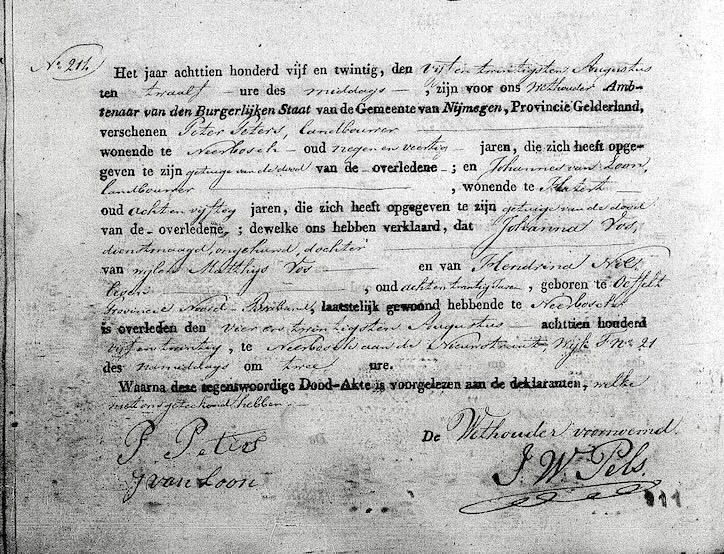 No. 214
Het jaar achttien honderd vijf en twintig, den vijf en twintigsten Augustus
ten twaalf ure des middags, zijn voor ons Wethouder Amb-
tenaar van den Burgerlijken Staat van de Gemeente van Nijmegen, Provincie Gelderland,
verschenen Peter Peters, landbouwer
wonende te Neerbosch oud negen en veertig jaren, die zich heeft opge-
geven te zijn getuige van de dood van de overledene; en Johannes van Loon,
landbouwer, wonende te Hatert
oud acht en vijftig jaren, die zich heeft opgegeven te zijn getuige van de dood
van de overledene; dewelke ons hebben verklaard, dat Johanna Vos,
dienstmaagd, ongehuwd, dochter
van wijlen Matthijs Vos en van Hendrina
, oud acht en twintig jaren, geboren te Oeffelt
Provincie Noord-Brabant, laatstelijk gewoond hebbende te Neerbosch
is overleden den vier en twintigsten Augustus achttien honderd
vijf en twintig, te Neerbosch aan de Wijk F No. 21
des namiddags om twee ure.
Waarna deze tegenswoordige Dood-Akte is voorgelezen aan de deklaranten, welke
met ons geteekend hebben.
De Wethouder voornoemd
P Peters
J van Loon
J. W. Pels.